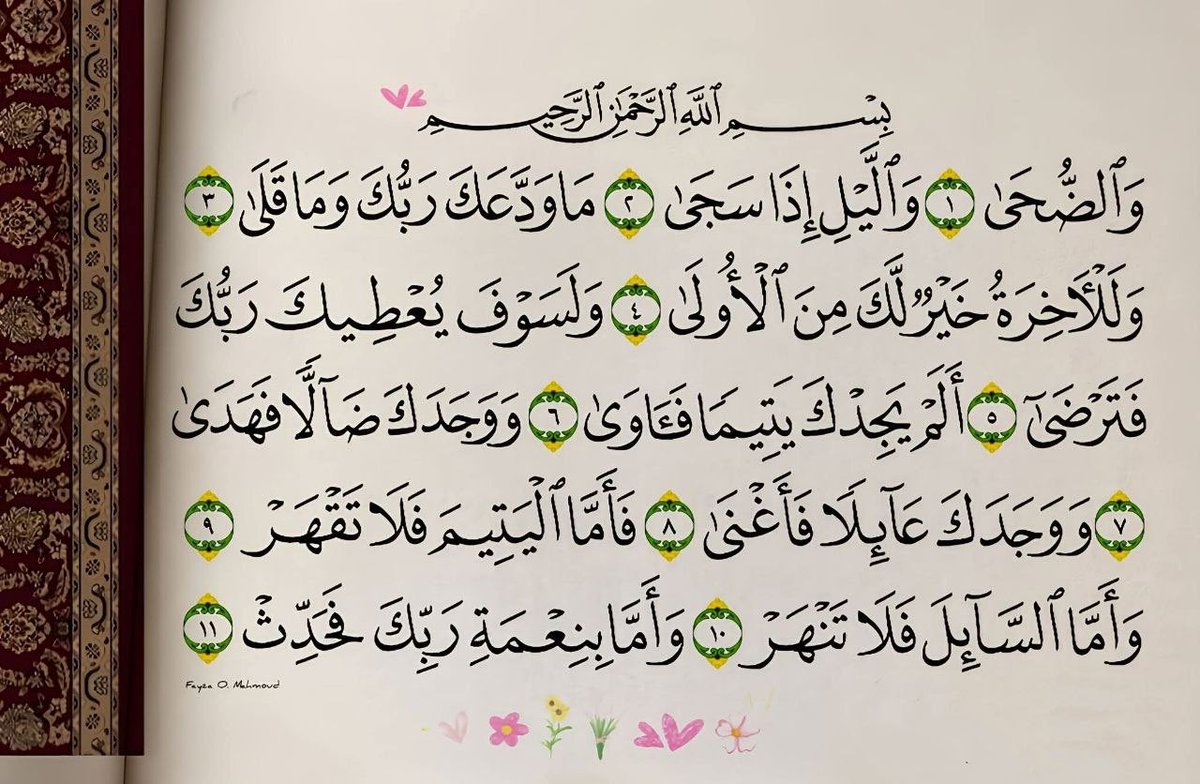 بِسْمِ ٱللَّهِ ٱلرَّحْمَٰنِ ٱلرَّحِيمِ
وَٱلضُّحَىٰ ١ وَٱلَّيْلِ إِذَا سَجَىٰ ٢ مَا وَدَّعَكَ رَبُّكَ وَمَا قَلَىٰ ٣
وَلَلْأَخِرَةُ خَيْرٌ لَّكَ مِنَ ٱلْأُولَىٰ ٤ وَلَسَوْفَ يُعْطِيكَ رَبُّكَ
فَتَرْضَىٰٓ ٥ أَلَمْ يَجِدْكَ يَتِيمًا فَـَٔاوَىٰ ٦ وَوَجَدَكَ ضَآلًّا فَهَدَىٰ
٧ وَوَجَدَكَ عَآئِلًا فَأَغْنَىٰ ٨ فَأَمَّا ٱلْيَتِيمَ فَلَا تَقْهَرْ ٩
وَأَمَّا ٱلسَّآئِلَ فَلَا تَنْهَرْ ١٠ وَأَمَّا بِنِعْمَةِ رَبِّكَ فَحَدِّثْ ١١
Fayza O. Mahmoud